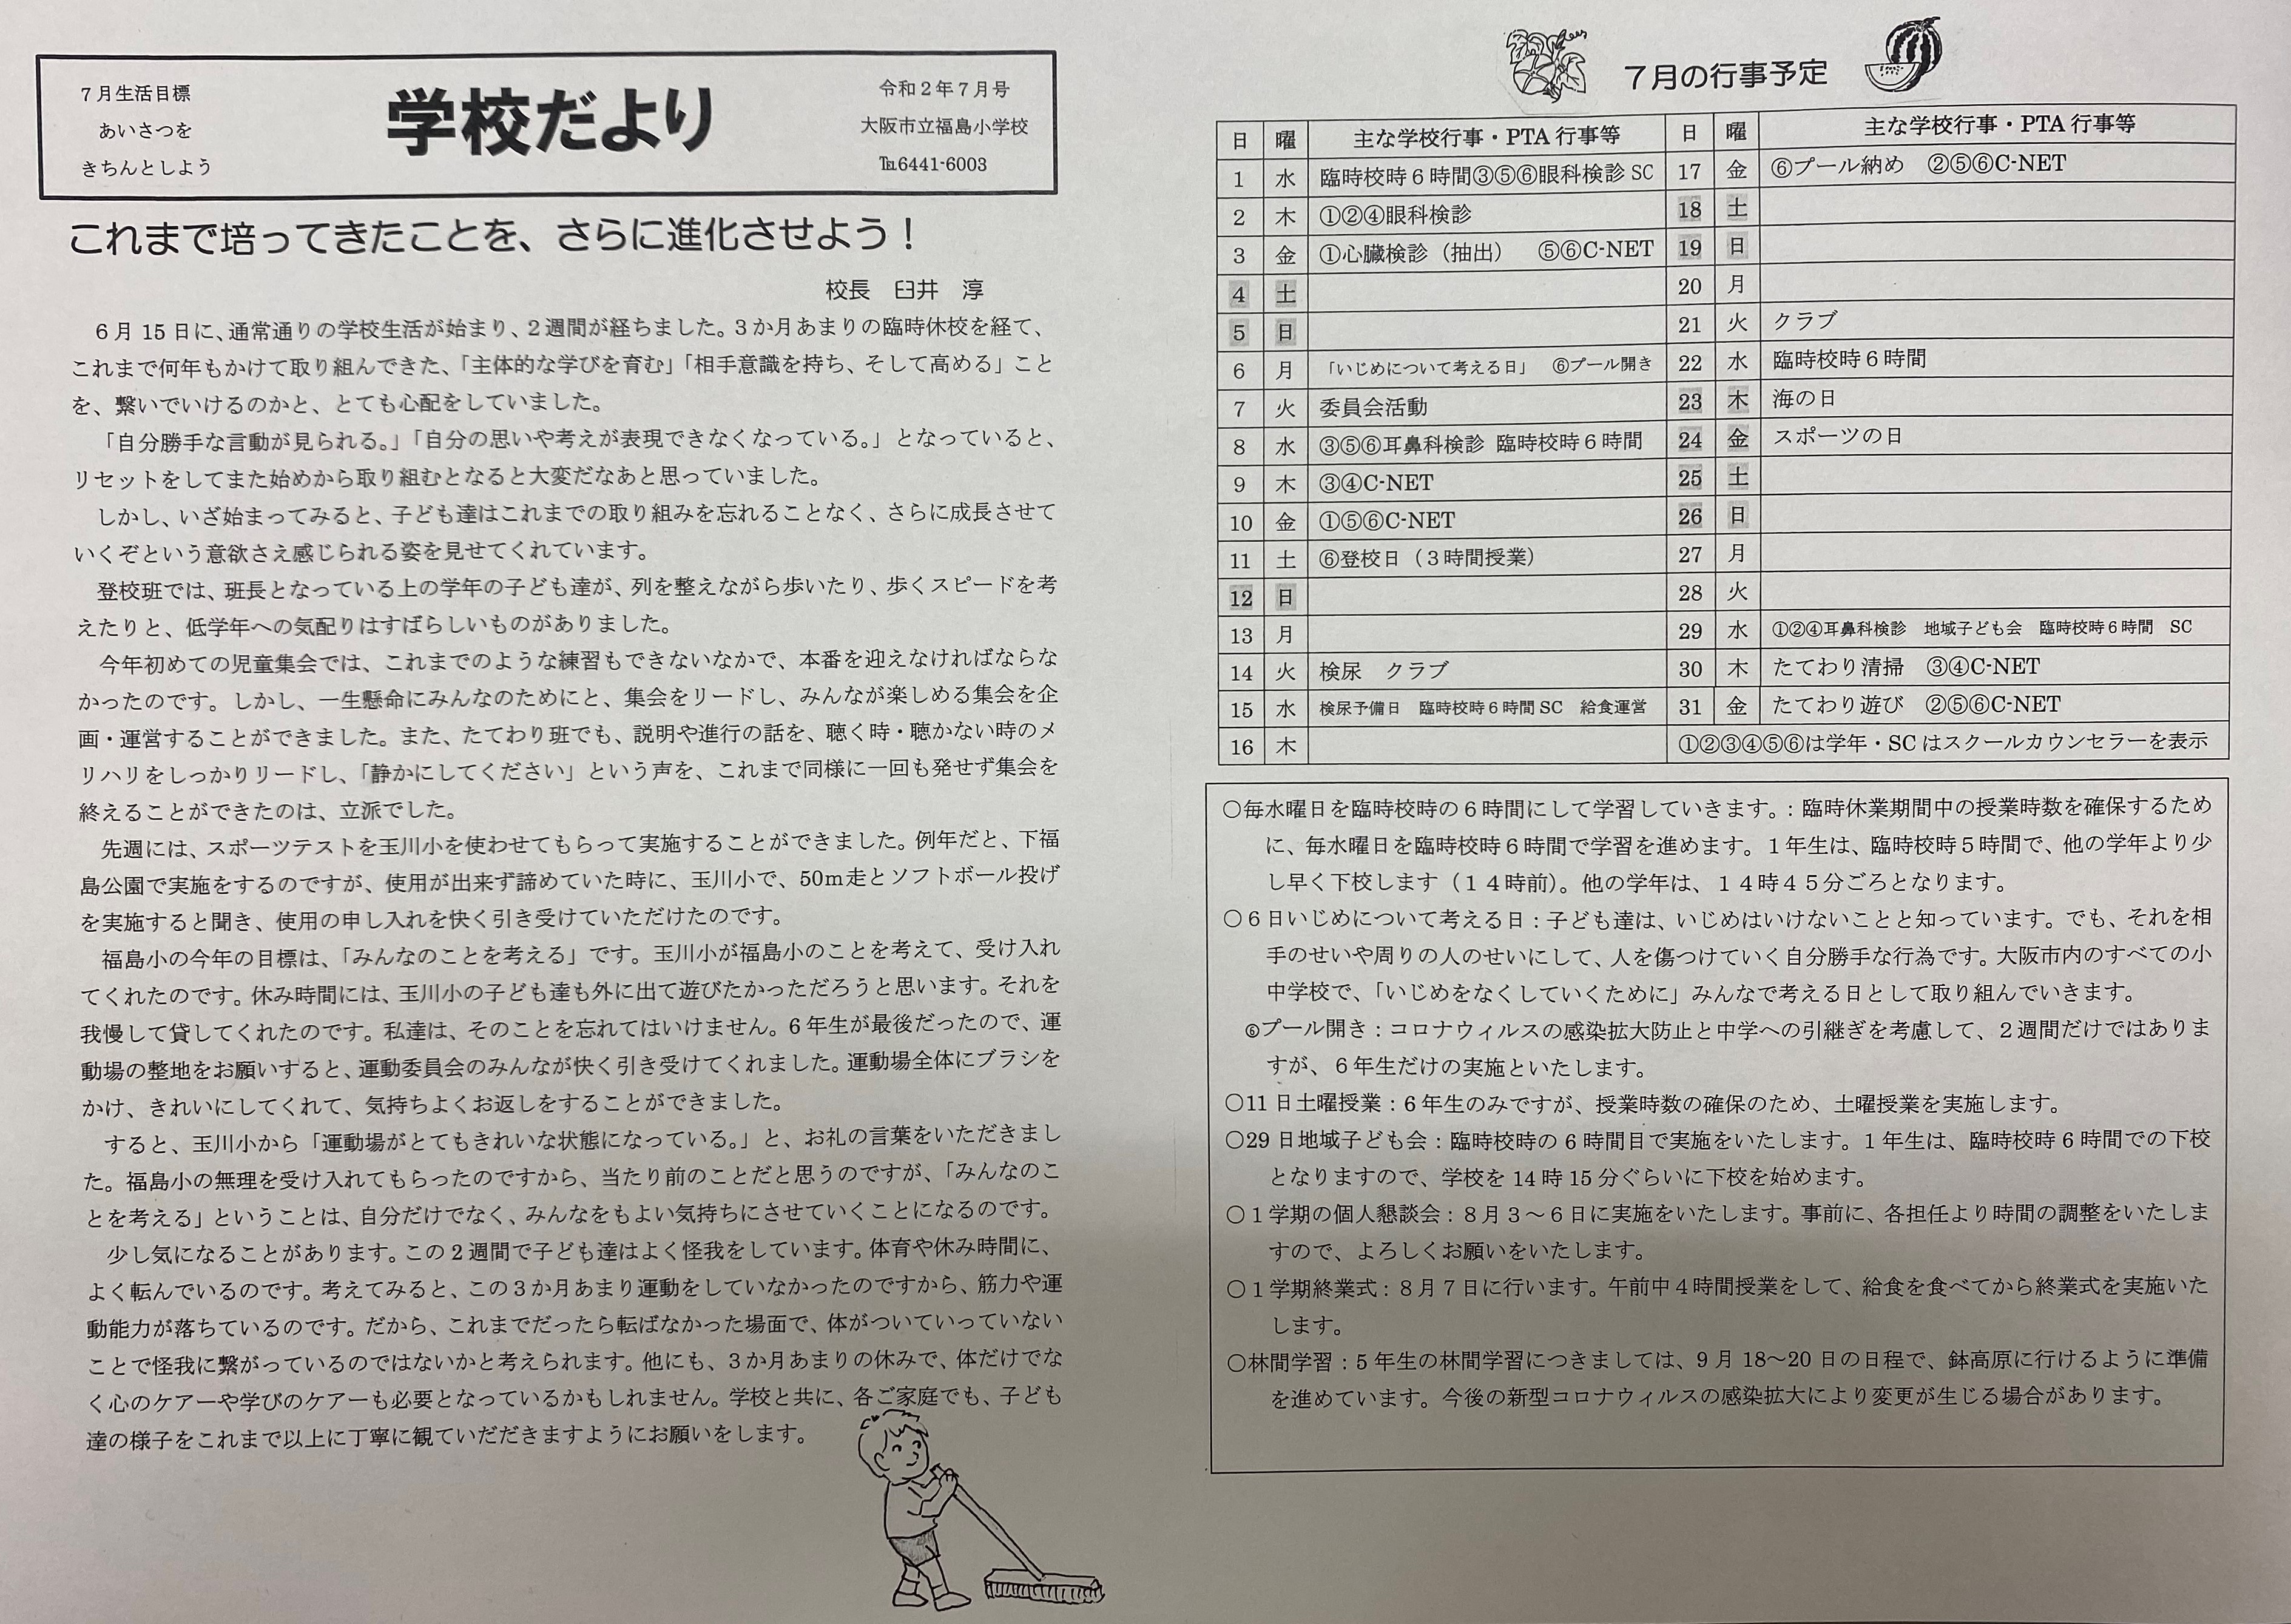 7月生活目標
あいさつを
きちんとしよう
学校だより
令和2年7月号
大阪市立福島小学校
℡6441-6003
これまで培ってきたことを、さらに進化させよう！
校長　臼井　淳
6月15日に、通常通りの学校生活が始まり、2週間が経ちました。3か月あまりの臨時休校を経て、
これまで何年もかけて取り組んできた、「主体的な学びを育む」「相手意識を持ち、そして高める」こと
を、繋いでいけるのかと、とても心配をしていました。
「自分勝手な言動が見られる。」「自分の思いや考えが表現できなくなっている。」となっていると、
リセットをしてまた始めから取り組むとなると大変だなあと思っていました。
しかし、いざ始まってみると、子ども達はこれまでの取り組みを忘れることなく、さらに成長させて
いくぞという意欲さえ感じられる姿を見せてくれています。
登校班では、班長となっている上の学年の子ども達が、列を整えながら歩いたり、歩くスピードを考
えたりと、低学年への気配りはすばらしいものがありました。
今年初めての児童集会では、これまでのような練習もできないなかで、本番を迎えなければならな
かったのです。しかし、一生懸命にみんなのためにと、集会をリードし、みんなが楽しめる集会を企
画・運営することができました。また、たてわり班でも、説明や進行の話を、聴く時・聴かない時のメ
リハリをしっかりリードし、「静かにしてください」という声を、これまで同様に一回も発せず集会を
終えることができたのは、立派でした。
先週には、スポーツテストを玉川小を使わせてもらって実施することができました。例年だと、下福
島公園で実施をするのですが、使用が出来ず諦めていた時に、玉川小で、50m走とソフトボール投げ
を実施すると聞き、使用の申し入れを快く引き受けていただけたのです。
福島小の今年の目標は、「みんなのことを考える」です。玉川小が福島小のことを考えて、受け入れ
てくれたのです。休み時間には、玉川小の子ども達も外に出て遊びたかっただろうと思います。それを
我慢して貸してくれたのです。私達は、そのことを忘れてはいけません。6年生が最後だったので、運
動場の整地をお願いすると、運動委員会のみんなが快く引き受けてくれました。運動場全体にブラシを
かけ、きれいにしてくれて、気持ちよくお返しをすることができました。
すると、玉川小から「運動場がとてもきれいな状態になっている。」と、お礼の言葉をいただきまし
た。福島小の無理を受け入れてもらったのですから、当たり前のことだと思うのですが、「みんなのこ
とを考える」ということは、自分だけでなく、みんなをもよい気持ちにさせていくことになるのです。
少し気になることがあります。この2週間で子ども達はよく怪我をしています。体育や休み時間に、
よく転んでいるのです。考えてみると、この3か月あまり運動をしていなかったのですから、筋力や運
動能力が落ちているのです。だから、これまでだったら転ばなかった場面で、体がついていっていない
ことで怪我に繋がっているのではないかと考えられます。他にも、3か月あまりの休みで、体だけでな
く心のケアーや学びのケアーも必要となっているかもしれません。学校と共に、各ご家庭でも、子ども
達の様子をこれまで以上に丁寧に観ていだだきますようにお願いをします。
7月の行事予定
日　曜　主な学校行事・PTA行事等
1　水　臨時校時6時間③⑤⑥眼科検診 SC
2　木　①②④眼科検診
3　金　①心臓検診（抽出）　⑤⑥C-NET
4　土
5　日
6　月　「いじめについて考える日」　⑥プール開き
7　火　委員会活動
8　水　③⑤⑥耳鼻科検診 臨時校時6時間
9　木　③④C-NET
10　金　①⑤⑥C-NET
11　土　⑥登校日（3時間授業）
12　日
13　月
14　火　検尿　クラブ
15　水　検尿予備日　臨時校時6時間 SC　給食運営
16　木
日　曜　主な学校行事・PTA行事等
17　金　⑥プール納め　②⑤⑥C-NET
18　土
19　日
20　月
21　火　クラブ
22　水　臨時校時6時間
23　木　海の日
24　金　スポーツの日
25　土
26　日
27　月
28　火
29　水　①②④耳鼻科検診　地域子ども会　臨時校時6時間　SC
30　木　たてわり清掃　③④C-NET
31　金　たてわり遊び　②⑤⑥C-NET
①②③④⑤⑥は学年・SCはスクールカウンセラーを表示
○毎水曜日を臨時校時の6時間にして学習していきます。：臨時休業期間中の授業時数を確保するため
に、毎水曜日を臨時校時6時間で学習を進めます。1年生は、臨時校時5時間で、他の学年より少
し早く下校します（14時前）。他の学年は、14時45分ごろとなります。
○6日いじめについて考える日：子ども達は、いじめはいけないことと知っています。でも、それを相
手のせいや周りの人のせいにして、人を傷つけていく自分勝手な行為です。大阪市内のすべての小
中学校で、「いじめをなくしていくために」みんなで考える日として取り組んでいきます。
⑥プール開き：コロナウィルスの感染拡大防止と中学への引継ぎを考慮して、2週間だけではありま
すが、6年生だけの実施といたします。
○11日土曜授業：6年生のみですが、授業時数の確保のため、土曜授業を実施します。
○29日地域子ども会：臨時校時の6時間目で実施をいたします。1年生は、臨時校時6時間での下校
となりますので、学校を14時15分ぐらいに下校を始めます。
○1学期の個人懇談会：8月3～6日に実施をいたします。事前に、各担任より時間の調整をいたしま
すので、よろしくお願いをいたします。
○1学期終業式：8月7日に行います。午前中4時間授業をして、給食を食べてから終業式を実施いた
します。
○林間学習：5年生の林間学習につきましては、9月18～20日の日程で、鉢高原に行けるように準備
を進めています。今後の新型コロナウィルスの感染拡大により変更が生じる場合があります。